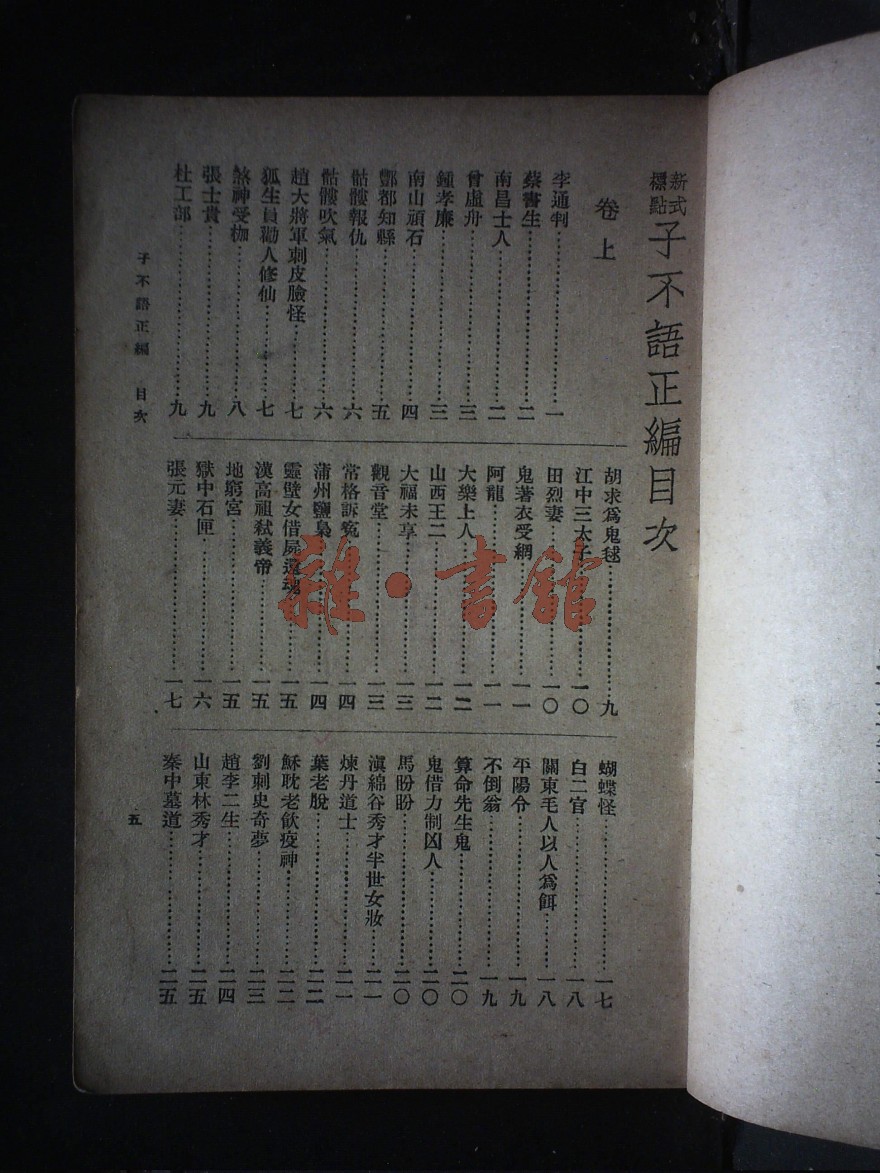 新式標點 子不語正編目次
卷上
李通判⋯⋯一
蔡書生⋯⋯二
南昌士人⋯⋯二
曾虛舟⋯⋯三
鍾孝廉⋯⋯三
南山頑石⋯⋯四
酆都知縣⋯⋯五
骷髏報仇⋯⋯六
骷髏吹氣⋯⋯六
趙大將軍刺皮臉怪⋯⋯七
狐生員勸人修仙⋯⋯七
煞神受枷⋯⋯八
張士貴⋯⋯九
杜工部⋯⋯九
胡求爲鬼毬⋯⋯九
江中三太子⋯⋯一〇
田烈妻⋯⋯一〇
鬼著衣受網⋯⋯一一
阿龍⋯⋯一一
大樂上人⋯⋯一二
山西王二⋯⋯一二
大福未享⋯⋯一三
觀音堂⋯⋯一三
常格訴冤⋯⋯一四
蒲州鹽梟⋯⋯一四
靈璧女借屍還魂⋯⋯一五
漢高祖弒義帝⋯⋯一五
地窮宮⋯⋯一五
獄中石匣⋯⋯一六
張元妻⋯⋯一七
蝴蝶怪⋯⋯一七
白二官⋯⋯一八
關東毛人以人爲餌⋯⋯一八
平陽令⋯⋯一九
不倒翁⋯⋯一九
算命先生鬼⋯⋯二〇
鬼借力制凶人⋯⋯二〇
馬盼盼⋯⋯二〇
滇綿谷秀才半世女妝⋯⋯二一
煉丹道士⋯⋯二一
葉老脫⋯⋯二二
穌耽老飲疫神⋯⋯二二
劉刺史奇夢⋯⋯二三
趙李二生⋯⋯二四
山東林秀才⋯⋯二五
秦中墓道⋯⋯二五
子不語正編 目次
五
雜·書館